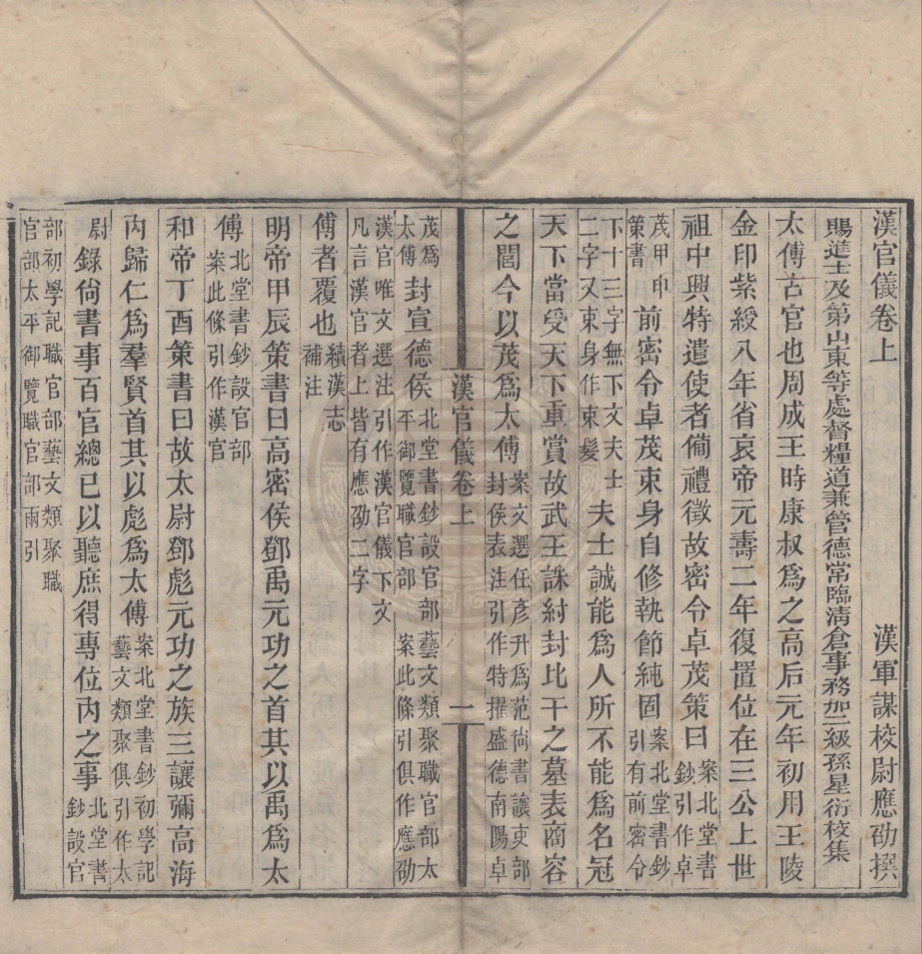 漢官儀卷上 漢軍謀校尉應劭撰
賜進士及第山東等處督糧道兼管德常臨清倉事務加三級孫星衍校集
太傅古官也周成王時康叔爲之高后元年初用王陵
金印紫綬八年省哀帝元壽二年復置位在三公上世
祖中興特遣使者備禮徵故密令卓茂策曰案北堂書
鈔引作卓
茂甲申
策書前密令卓茂束身自修執節純固案北堂書鈔
引有前密令
下十三字無下文夫士
二字又束身作束髮夫士誠能爲人所不能爲名冠
天下當受天下重賞故武王誅紂封比干之墓表商容
之閭今以茂爲太傅案文選任彥升爲范尚書讓吏部
封侯表注引作特擢盛德南陽卓
漢官儀卷上 一
茂爲
太傅封宣德侯北堂書鈔設官部藝文類聚職官部太
平御覽職官部 案此條引俱作應劭
漢官唯文選注引作漢官儀下文
凡言漢官者上皆有應劭二字
傅者覆也續漢志
補注
明帝甲辰策書曰高密侯鄧禹元功之首其以禹爲太
傅北堂書鈔設官部
案此條引作漢官
和帝丁酉策書曰故太尉鄧彪元功之族三讓彌高海
內歸仁爲羣賢首其以彪爲太傅案北堂書鈔初學記
藝文類聚俱引作太
尉錄尚書事百官總已以聽庶得專位內之事北堂書
鈔設官
部初學記職官部藝文類聚職
官部太平御覽職官部兩引